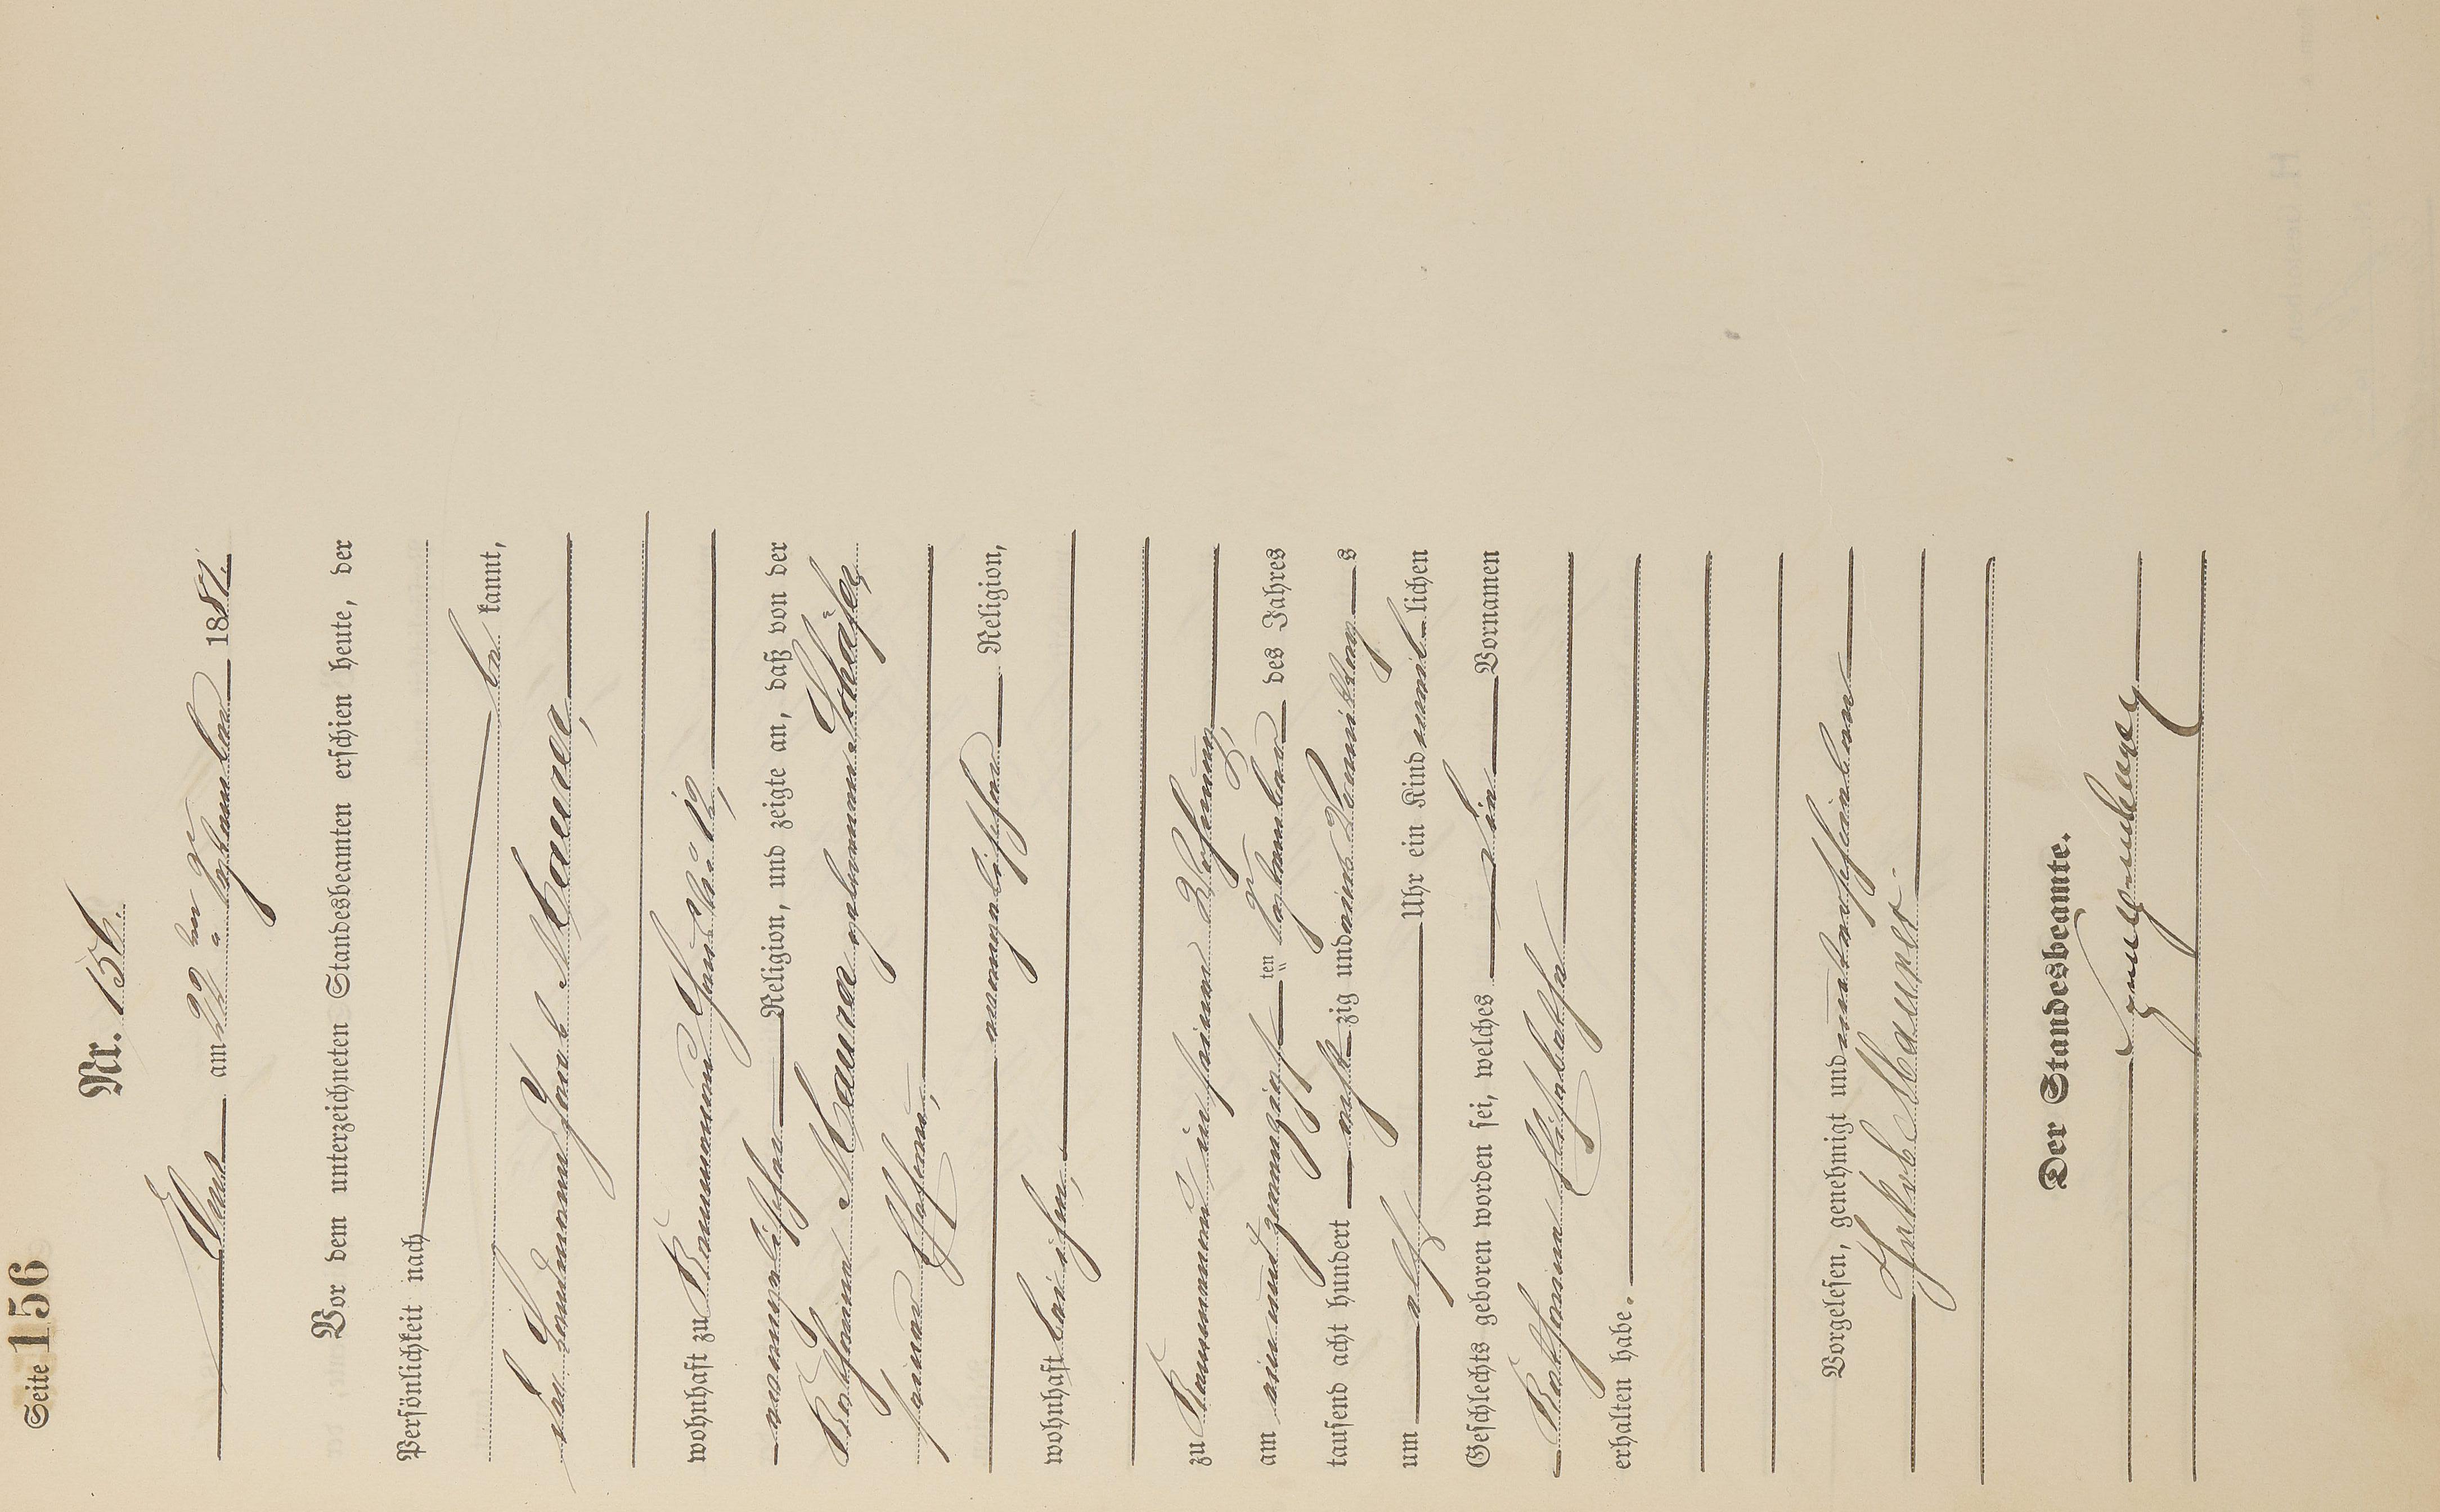 Seite 156
Nr. 156.
am 22ten September 1887.
Vor dem unterzeichneten Standesbeamten erschien heute, der
Persönlichkeit nach
be kannt,
der Landmann Jacob Maurer,
wohnhaft zu
evangelischer Religion, und zeigte an, daß von der
Katharina Maurer geborenen Schäfer,
seiner Ehefrau,
evangelischer Religion,
wohnhaft bei ihm,
zu in seiner Wohnung,
am ein und zwanzigsten September des Jahres
tausend acht hundert acht zig und Vormittags
um elf Uhr ein Kind weiblichen
Geschlechts geboren worden sei, welches die Vornamen
Katharina Elisabetha
erhalten habe.
Vorgelesen, genehmigt und unterschrieben
Jakob Maurer.
Der Standesbeamte.